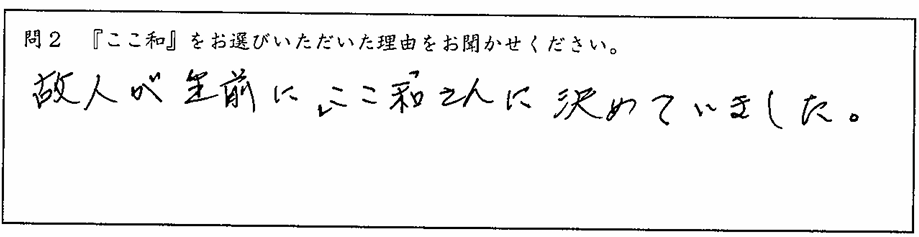 問2 『ここ和』をお選びいただいた理由をお聞かせください。
故人が生前に、ここ和さんに決めていました。